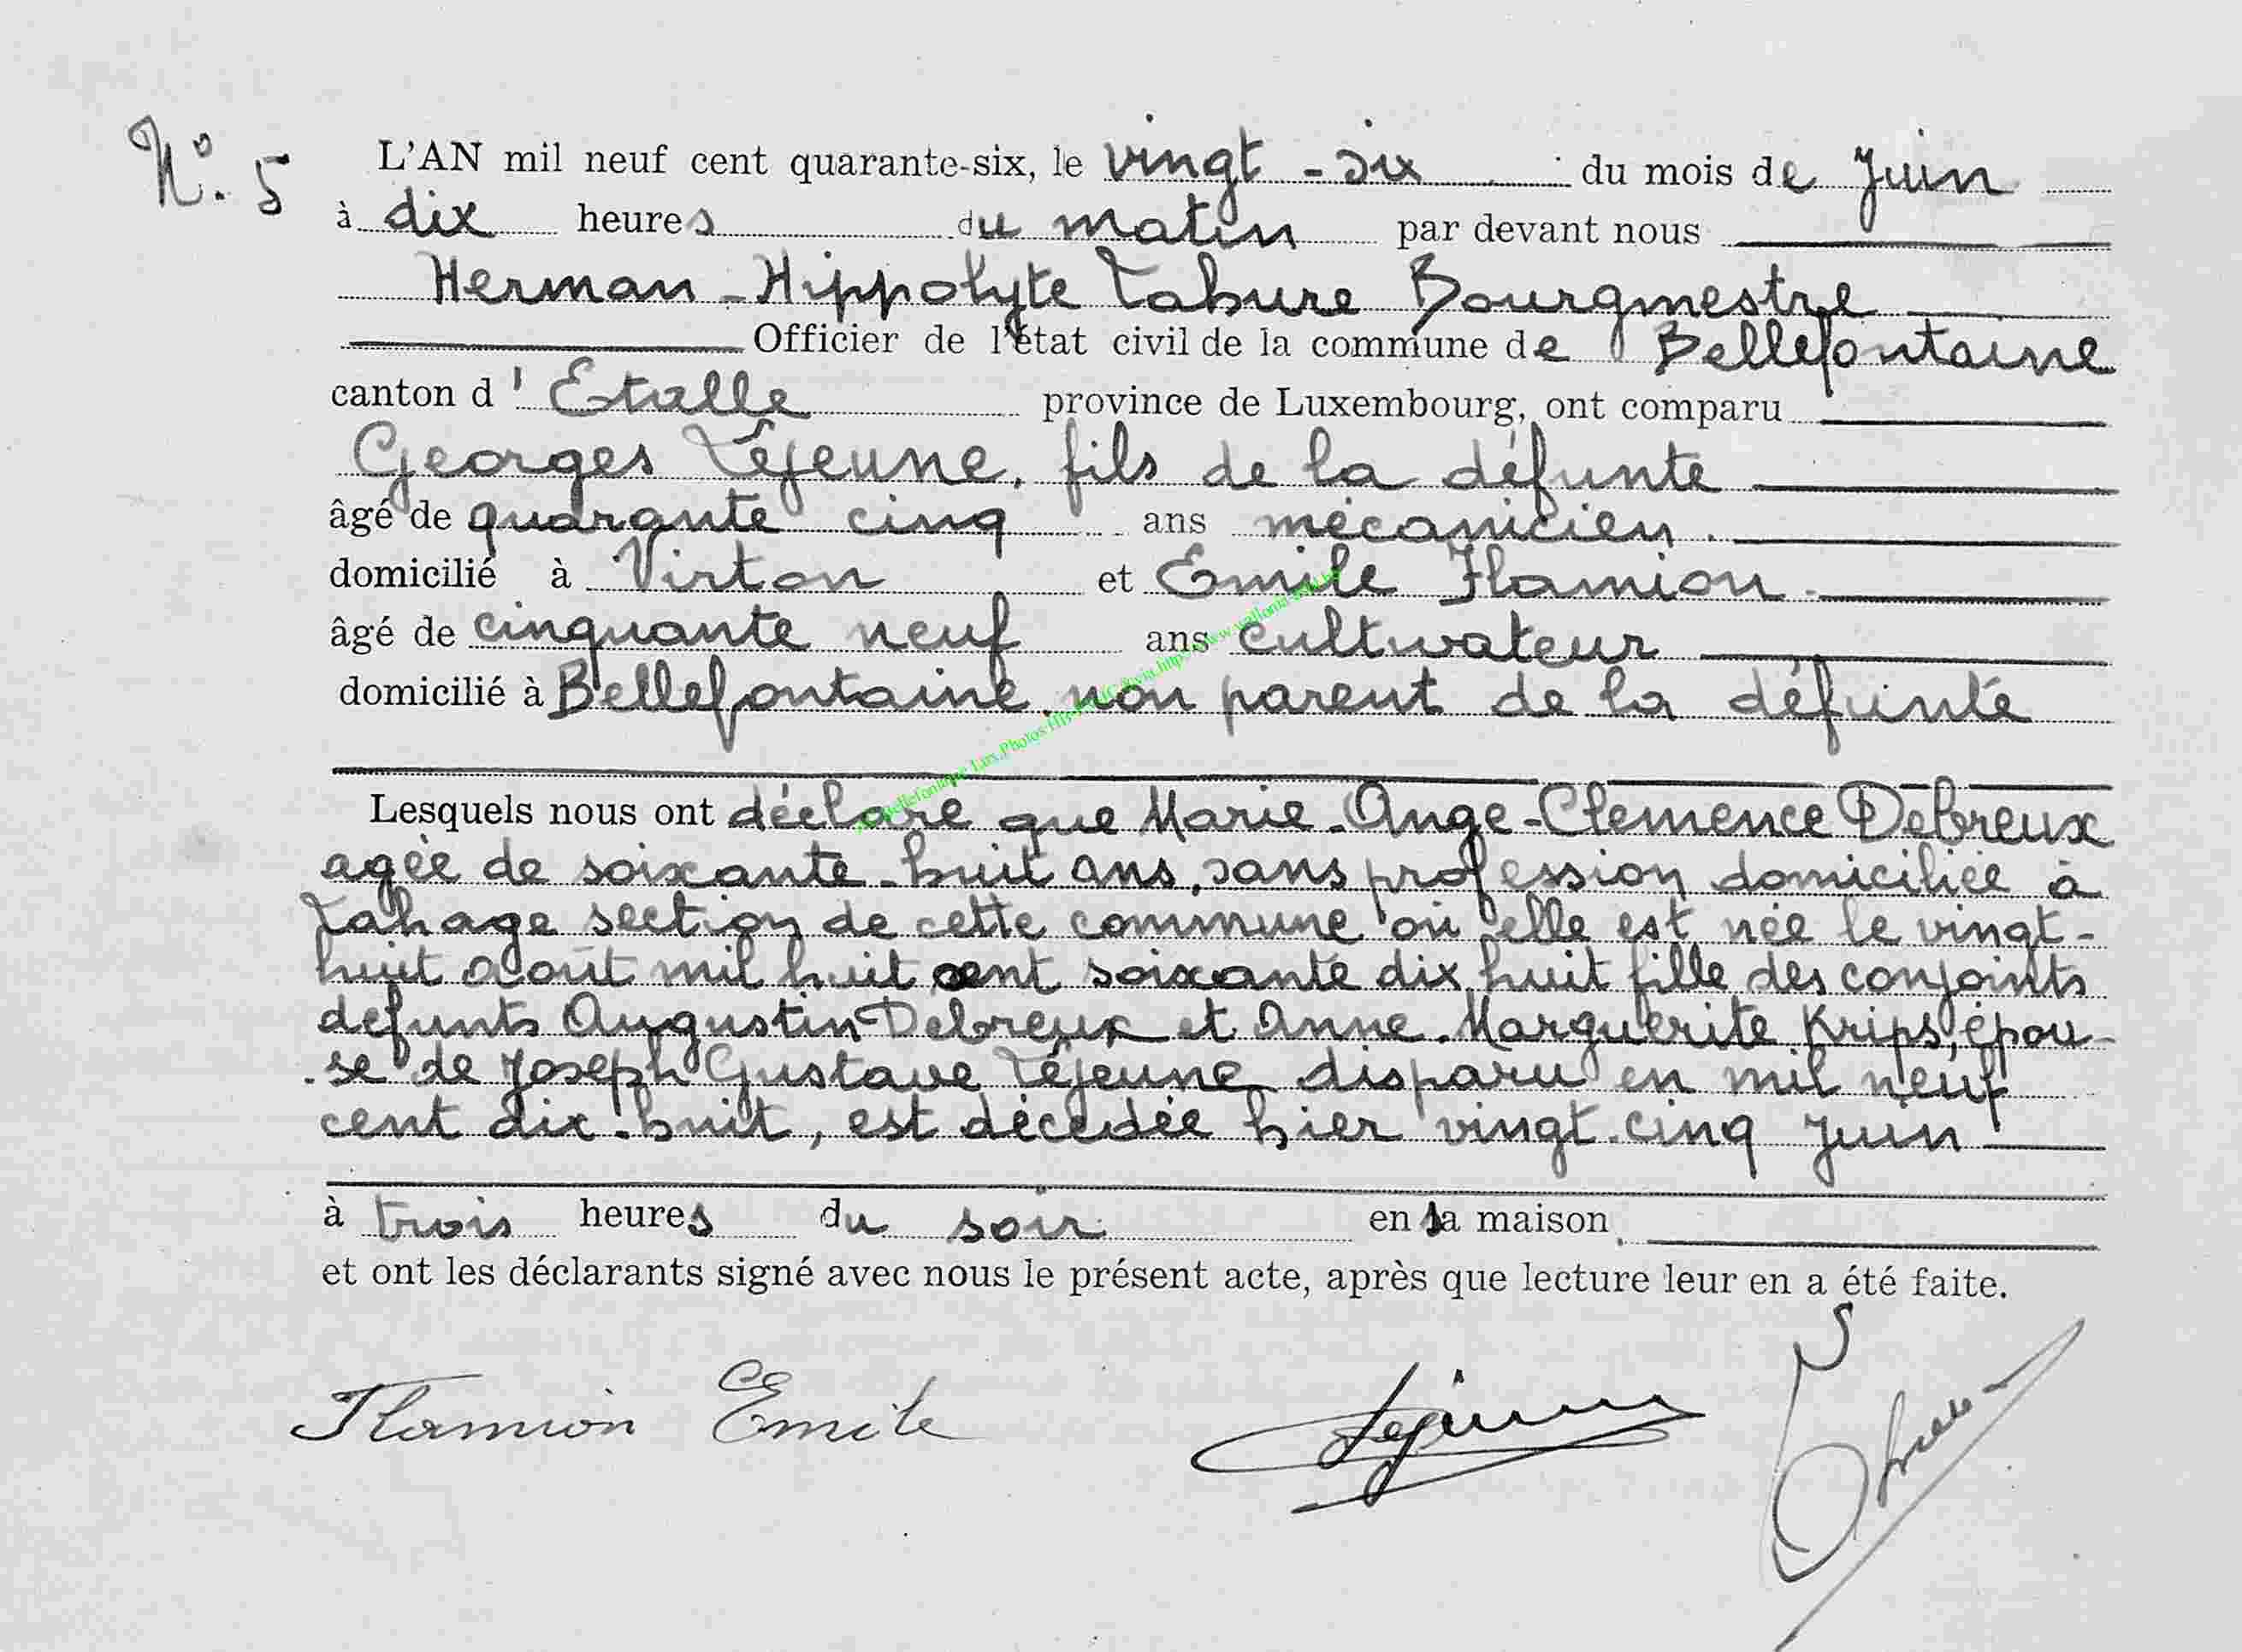 N° 5
L'AN mil neuf cent quarante-six, le vingt-six du mois de Juin
à dix heures du matin par devant nous
Herman-Hippolyte Labure Bourgmestre
Officier de l'état civil de la commune de Bellefontaine
canton d'Etalle province de Luxembourg, ont comparu
Georges Lejeune, fils de la défunte
âgé de quarante cinq ans mécanicien.
domicilié à Virton et Emile Flamion.
âgé de cinquante neuf ans cultivateur
domicilié à Bellefontaine, non parent de la défunte
Lesquels nous ont déclaré que Marie-Ange-Clemence Debreux
agée de soixante-huit ans, sans profession domiciliée à
Lahage section de cette commune où elle est née le vingt-
huit août mil huit cent soixante dix huit fille des conjoints
defunts Augustin Debreux et Anne-Marguerite Krips, épou-
-se de Joseph Gustave Lejeune disparu en mil neuf
cent dix-huit, est décédée hier vingt-cinq Juin
à trois heures du soir en sa maison.
et ont les déclarants signé avec nous le présent acte, après que lecture leur en a été faite.
Flamion Emile Lejeune